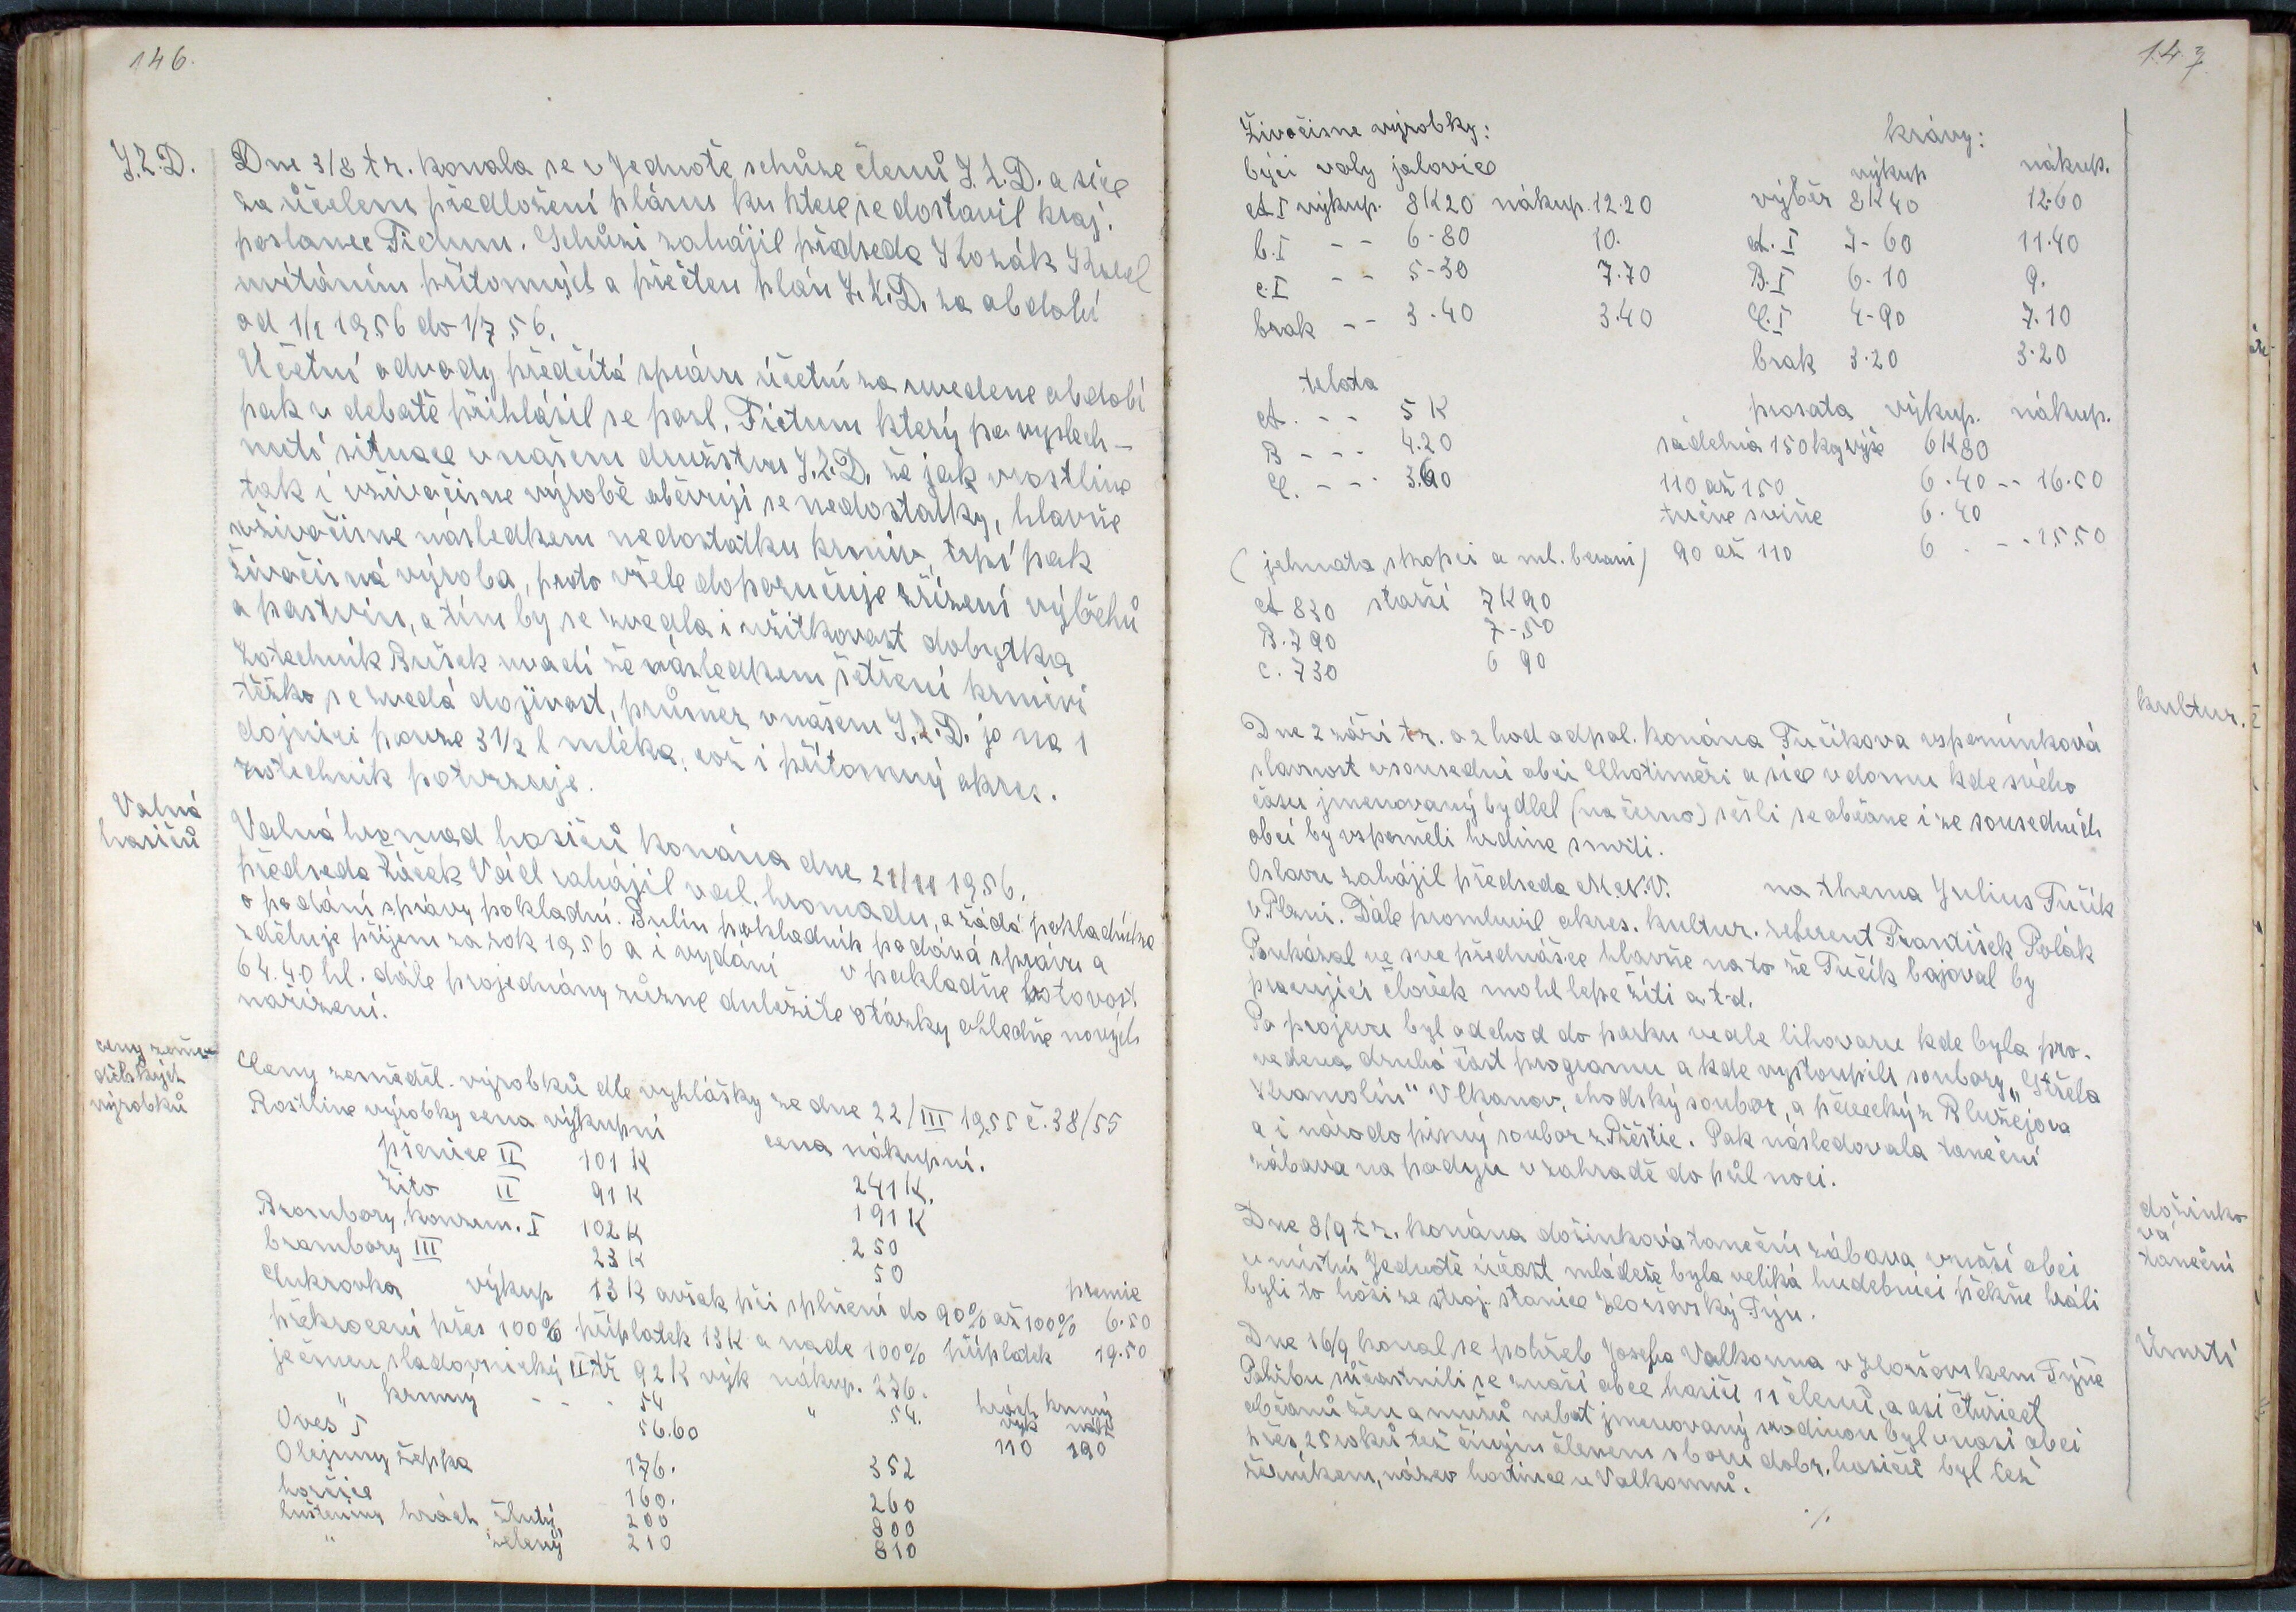 146.
J.Z.D.
Dne 3/8 t r. konala se v Jednotě schůze členů J.Z.D. a sice
za účelem předložení plánu ku ktere se dostavil kraj.
poslanec Fictum. Schůzi zahájil předseda Kozák Karel
uvítáním přítomných a přečten plán J.Z.D. za období
od 1/1 1956 do 1/7 56.
Účetní odvody předčítá správu účetní za uvedene období
pak v debatě přihlásil se posl. Fictum který po vyslech-
nutí situace v našem družstvu J.Z.D. že jak v rostline
tak i v živočisne výrobě oběvují se nedostatky, hlavně
v živočisne následkem nedostatku krmiv, trpí pak
živočisná výroba, proto vřele doporučuje zřízení výběhů
a pastvin, a tím by se zvedla i užitkovost dobytka
Zotechnik Bušek uvadí že následkem šetření krmivi
těžko se zvedá dojivost, průměr v našem J.Z.D. je na 1
dojnici pouze 3 1/2 l mléka, což i přítomný okres.
zotechnik potvrzuje.
Valná
hasičů
Valná hromad hasičů konána dne 21/11 1956.
předseda Žáček Václ zahájil val. hromadu, a žádá pokladníka
o podání správy pokladní. Bulín pokladník podává správu a
zděluje příjem za rok 1956 a i vydání v pokladně hotovost
64.40 hl. dále projednány různe duležite otázky ohledně nových
nařízení.
ceny země-
dělských
výrobků
Ceny zeměděl. výrobků dle vyhlášky ze dne 22/III 1955 č. 38/55
Rostline výrobky cena výkupní cena nákupní.
pšenice II 101 K 241 K.
žito II 91 K 191 K
Brambory, konzum. I 102 K 250
brambory III 23 K 50
Cukrovka výkup 13 K avšak při splnění do 90% až 100% premie 6.50
překrocení přes 100% příplatek 13 K a nade 100% příplatek 19.50
ječmen sladovnický II tř 92 K výk nákup. 276.
" krmny - - . 54 " 54. hrách krmný
Oves I 56.60 výk nák
110 190
Olejniny řepka 176. 352
hořčice 160. 260
luštěniny hrách žlutý 200 800
" zelený 210 810
147
Živočisne výrobky:
býci voly jalovice
A I výkup. 8K20 nákup. 12.20
b.I - - 6-80 10.
c.I - - 5-30 7.70
brak - - 3.40 3.40
krávy:
výkup nákup.
výběr 8K40 12.60
A. I 7-60 11.40
B.I 6-10 9.
C.I 4-90 7.10
brak 3.20 3.20
telata
A. - - 5 K
B - - - 4.20
C. - - - 3.60
prasata výkup. nákup.
sádelná 150 kg výše 6K80
110 až 150 6.40 -- 16.50
tučne svině 6.40
90 až 110 6 . - - . 15.50
( jehnata, skopci a ml. berani)
A 830 starší 7K90
B. 790 7-50
C. 730 6 90
kultur.
Dne 2 září t r. o 2 hod odpol. konána Fučíkova vspomínková
slavnost v sousední obci Chotiměři a sice v domu kde svého
času jmenovaný bydlel (na černo) sešli se občane i ze sousedních
obcí by vspoměli hrdine smrti.
Oslavu zahájil předseda M.N.V. na thema Julius Fučík
v Plzni. Dále promluvil okres. kultur. referent František Polák
Poukázal ve sve přednášce hlavně na to že Fučík bojoval by
pracující člověk mohl lepe žíti a. t. d.
Po projevu byl odchod do parku vedle lihovaru kde byla pro-
vedena druhá část programu a kde vystoupili soubory „Střela
Kvamolín" Vlkanov, chodský soubor, a pěvecký z Blížejova
a i národopisný soubor z Přeštic. Pak následovala taneční
zábava na podyu v zahradě do půl noci.
dožinko
vá
taneční
Dne 8/9 t r. konána dožinková taneční zábava v naší obci
v místní Jednotě účast mládeže byla veliká hudebníci pěkně hráli
byli to hoši ze stroj. stanice z Horšovský Týn.
Úmrtí
Dne 16/9 konal se pohřeb Josefa Valkouna v Horšovskem Týně
Pohřbu súčastnili se z naší obce hasiči 11 členů, a asi čtřicet
občanů žen a mužů nebot jmenovaný s rodinou byl v nasi obci
přes 25 roků tež činým členem sboru dobr. hasičů byl též
řezníkem, název hostince u Valkounů.
./.